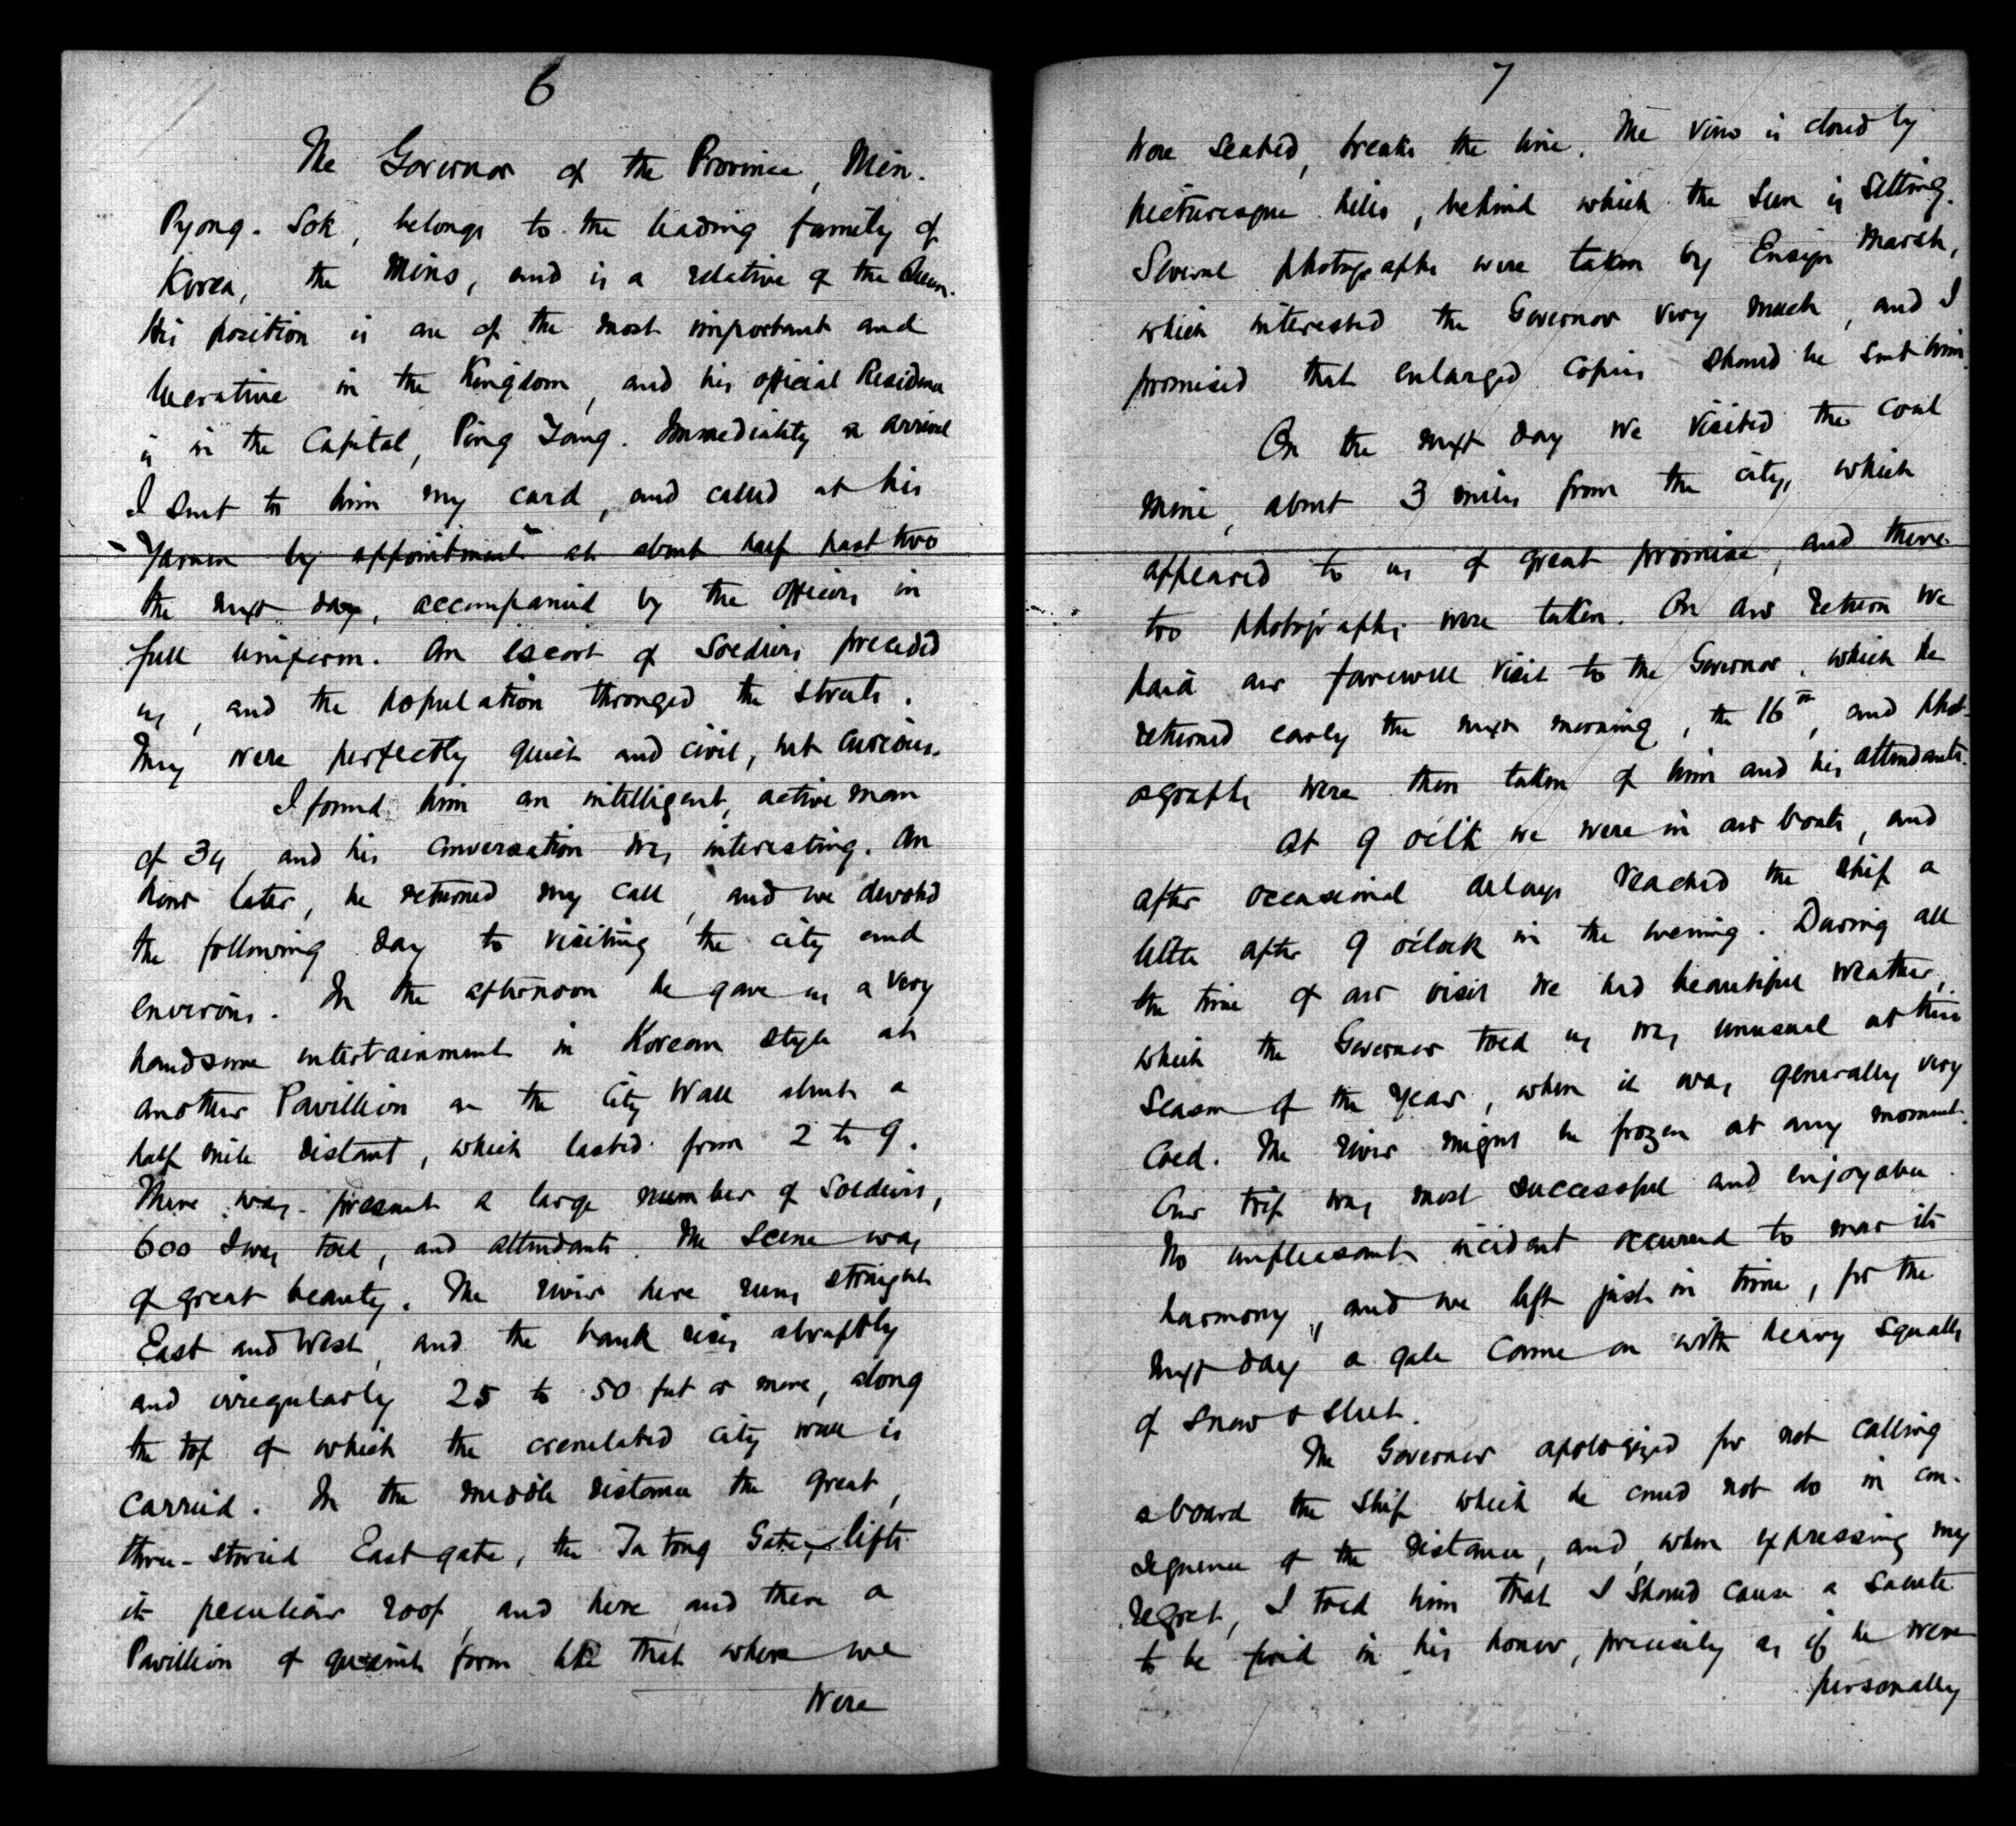 6
The Governor of the Province, Min.
Pyong. Sok, belongs to the leading family of
Korea, the Mins, and is a relative of the Queen.
His position is one of the most important and
lucrative in the Kingdom, and his official Residence
is in the Capital, Ping Yang. Immediately on arrival
I sent to him my card, and called at his
Yamen by appointment at about half past two
the next day, accompanied by the officers in
full uniform. An escort of Soldiers preceded
us, and the population thronged the streets.
They were perfectly quiet and civil, but curious.
I found him an intelligent, active man
of 34, and his conversation was interesting. An
hour later, he returned my call, and we devoted
the following day to visiting the city and
environs. In the afternoon he gave us a very
handsome entertainment in Korean style at
another Pavillion on the City Wall about a
half mile distant, which lasted from 2 to 9.
There was present a large number of Soldiers,
600 I was told, and attendants. The Scene was
of great beauty. The river here runs straight
East and West, and the bank rises abruptly
and irregularly 25 to 50 feet or more, along
the top of which the crenelated city wall is
carried. In the middle distance the great,
three-storied East gate, the Ta tong Gate, lifts
its peculiar roof, and here and there a
Pavillion of quaint form like that where we
Were
7
were seated, breaks the line. The view is closed by
picturesque hills, behind which the Sun is Setting.
Several photographs were taken by Ensign Marsh,
which interested the Governor very much, and I
promised that enlarged copies should be sent him.
On the next day we visited the coal
mine, about 3 miles from the city, which
appeared to us of great promise, and there
too photographs were taken. On our return we
paid our farewell visit to the Governor, which he
returned early the next morning, the 16th, and phot-
ographs were then taken of him and his attendants.
At 9 o'clk we were in our boats, and
after occasional delays reached the ship a
little after 9 o'clock in the evening. During all
the time of our visit we had beautiful weather,
which the Governor told us was unusual at this
Season of the year, when it was generally very
cold. The river might be frozen at any moment.
Our trip was most successful and enjoyable.
No unpleasant incident occurred to mar its
harmony, and we left just in time, for the
next day a gale came on with heavy squalls
of snow & sleet.
The Governor apologized for not calling
aboard the Ship which he could not do in con-
sequence of the distance, and, when expressing my
regret, I told him that I should cause a Salute
to be fired in his honor, precisely as if he were
personally